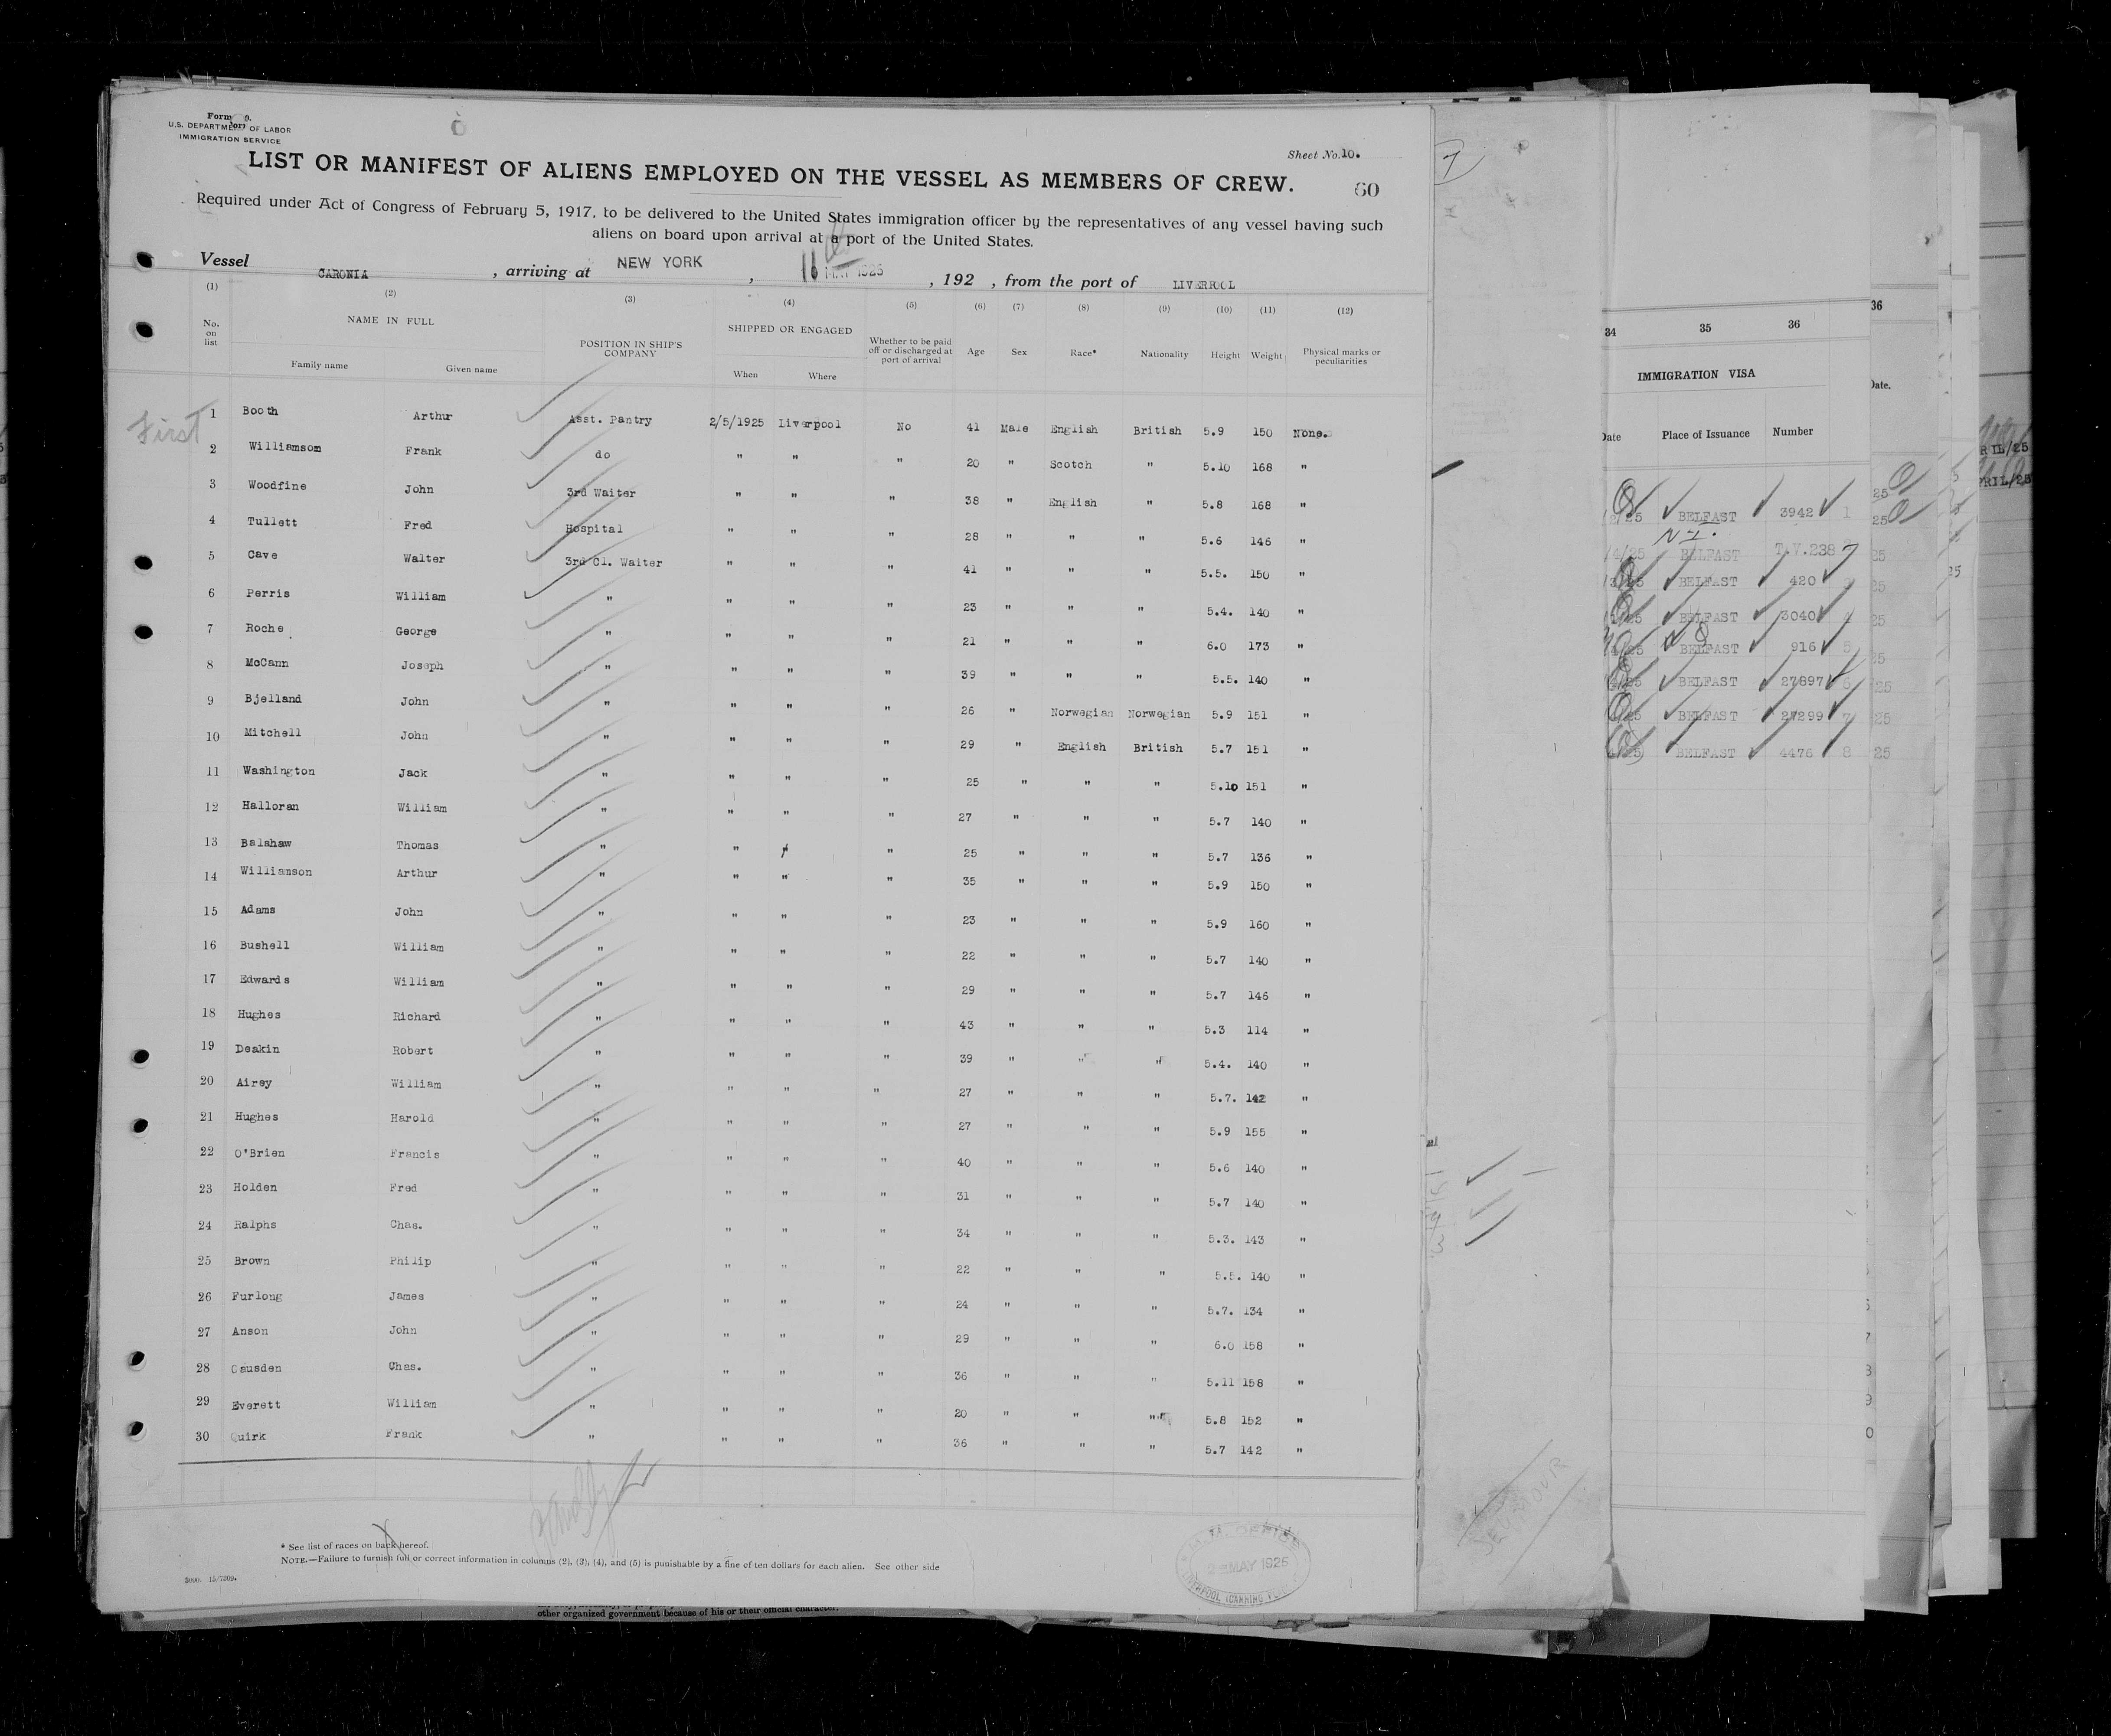 U.S. DEPARTMENT OF LABOR
IMMIGRATION SERVICE
Sheet No. 10.
LIST OR MANIFEST OF ALIENS EMPLOYED ON THE VESSEL AS MEMBERS OF CREW.
60
Required under Act of Congress of February 5, 1917, to be delivered to the United States immigration officer by the representatives of any vessel having such
aliens on board upon arrival at a port of the United States.
Vessel CARONIA , arriving at NEW YORK , 11 MAY 1925 , 192 , from the port of LIVERPOOL
(1) (2) (3) (4) (5) (6) (7) (8) (9) (10) (11) (12)
No. on list NAME IN FULL POSITION IN SHIP'S COMPANY SHIPPED OR ENGAGED Whether to be paid off or discharged at port of arrival Age Sex Race* Nationality Height Weight Physical marks or peculiarities
Family name Given name When Where
First
1 Booth Arthur Asst. Pantry 2/5/1925 Liverpool No 41 Male English British 5.9 150 None.
2 Williamsom Frank do " " " 20 " Scotch " 5.10 168 "
3 Woodfine John 3rd Waiter " " " 38 " English " 5.8 168 "
4 Tullett Fred Hospital " " " 28 " " " 5.6 146 "
5 Cave Walter 3rd Cl. Waiter " " " 41 " " " 5.5. 150 "
6 Perris William " " " " 23 " " " 5.4. 140 "
7 Roche George " " " " 21 " " " 6.0 173 "
8 McCann Joseph " " " " 39 " " " 5.5. 140 "
9 Bjelland John " " " " 26 " Norwegian Norwegian 5.9 151 "
10 Mitchell John " " " " 29 " English British 5.7 151 "
11 Washington Jack " " " " 25 " " " 5.10 151 "
12 Halloran William " " " " 27 " " " 5.7 140 "
13 Balshaw Thomas " " " " 25 " " " 5.7 136 "
14 Willianson Arthur " " " " 35 " " " 5.9 150 "
15 Adams John " " " " 23 " " " 5.9 160 "
16 Bushell William " " " " 22 " " " 5.7 140 "
17 Edwards William " " " " 29 " " " 5.7 146 "
18 Hughes Richard " " " " 43 " " " 5.3 114 "
19 Deakin Robert " " " " 39 " " " 5.4. 140 "
20 Airey William " " " " 27 " " " 5.7. 142 "
21 Hughes Harold " " " " 27 " " " 5.9 155 "
22 O'Brien Francis " " " " 40 " " " 5.6 140 "
23 Holden Fred " " " " 31 " " " 5.7 140 "
24 Ralphs Chas. " " " " 34 " " " 5.3. 143 "
25 Brown Philip " " " " 22 " " " 5.5. 140 "
26 Furlong James " " " " 24 " " " 5.7. 134 "
27 Anson John " " " " 29 " " " 6.0 158 "
28 Causden Chas. " " " " 36 " " " 5.11 158 "
29 Everett William " " " " 20 " " " 5.8 152 "
30 Quirk Frank " " " " 36 " " " 5.7 142 "
* See list of races on back hereof.
NOTE.—Failure to furnish full or correct information in columns (2), (3), (4), and (5) is punishable by a fine of ten dollars for each alien. See other side
OFFICE
2 MAY 1925
LIVERPOOL
other organized government because of his or their official character.
SEYMOUR
34 35 36
IMMIGRATION VISA
Date Place of Issuance Number
/2/25 BELFAST 3942 1
N I.
/4/25 BELFAST T.V.238
BELFAST 420
BELFAST 3040
BELFAST 916 5
BELFAST 27897 6
BELFAST 27299 7
BELFAST 4476 8
36
Date.
25
25
25
25
25
25
25
25
25
RIL/25
PRIL/25